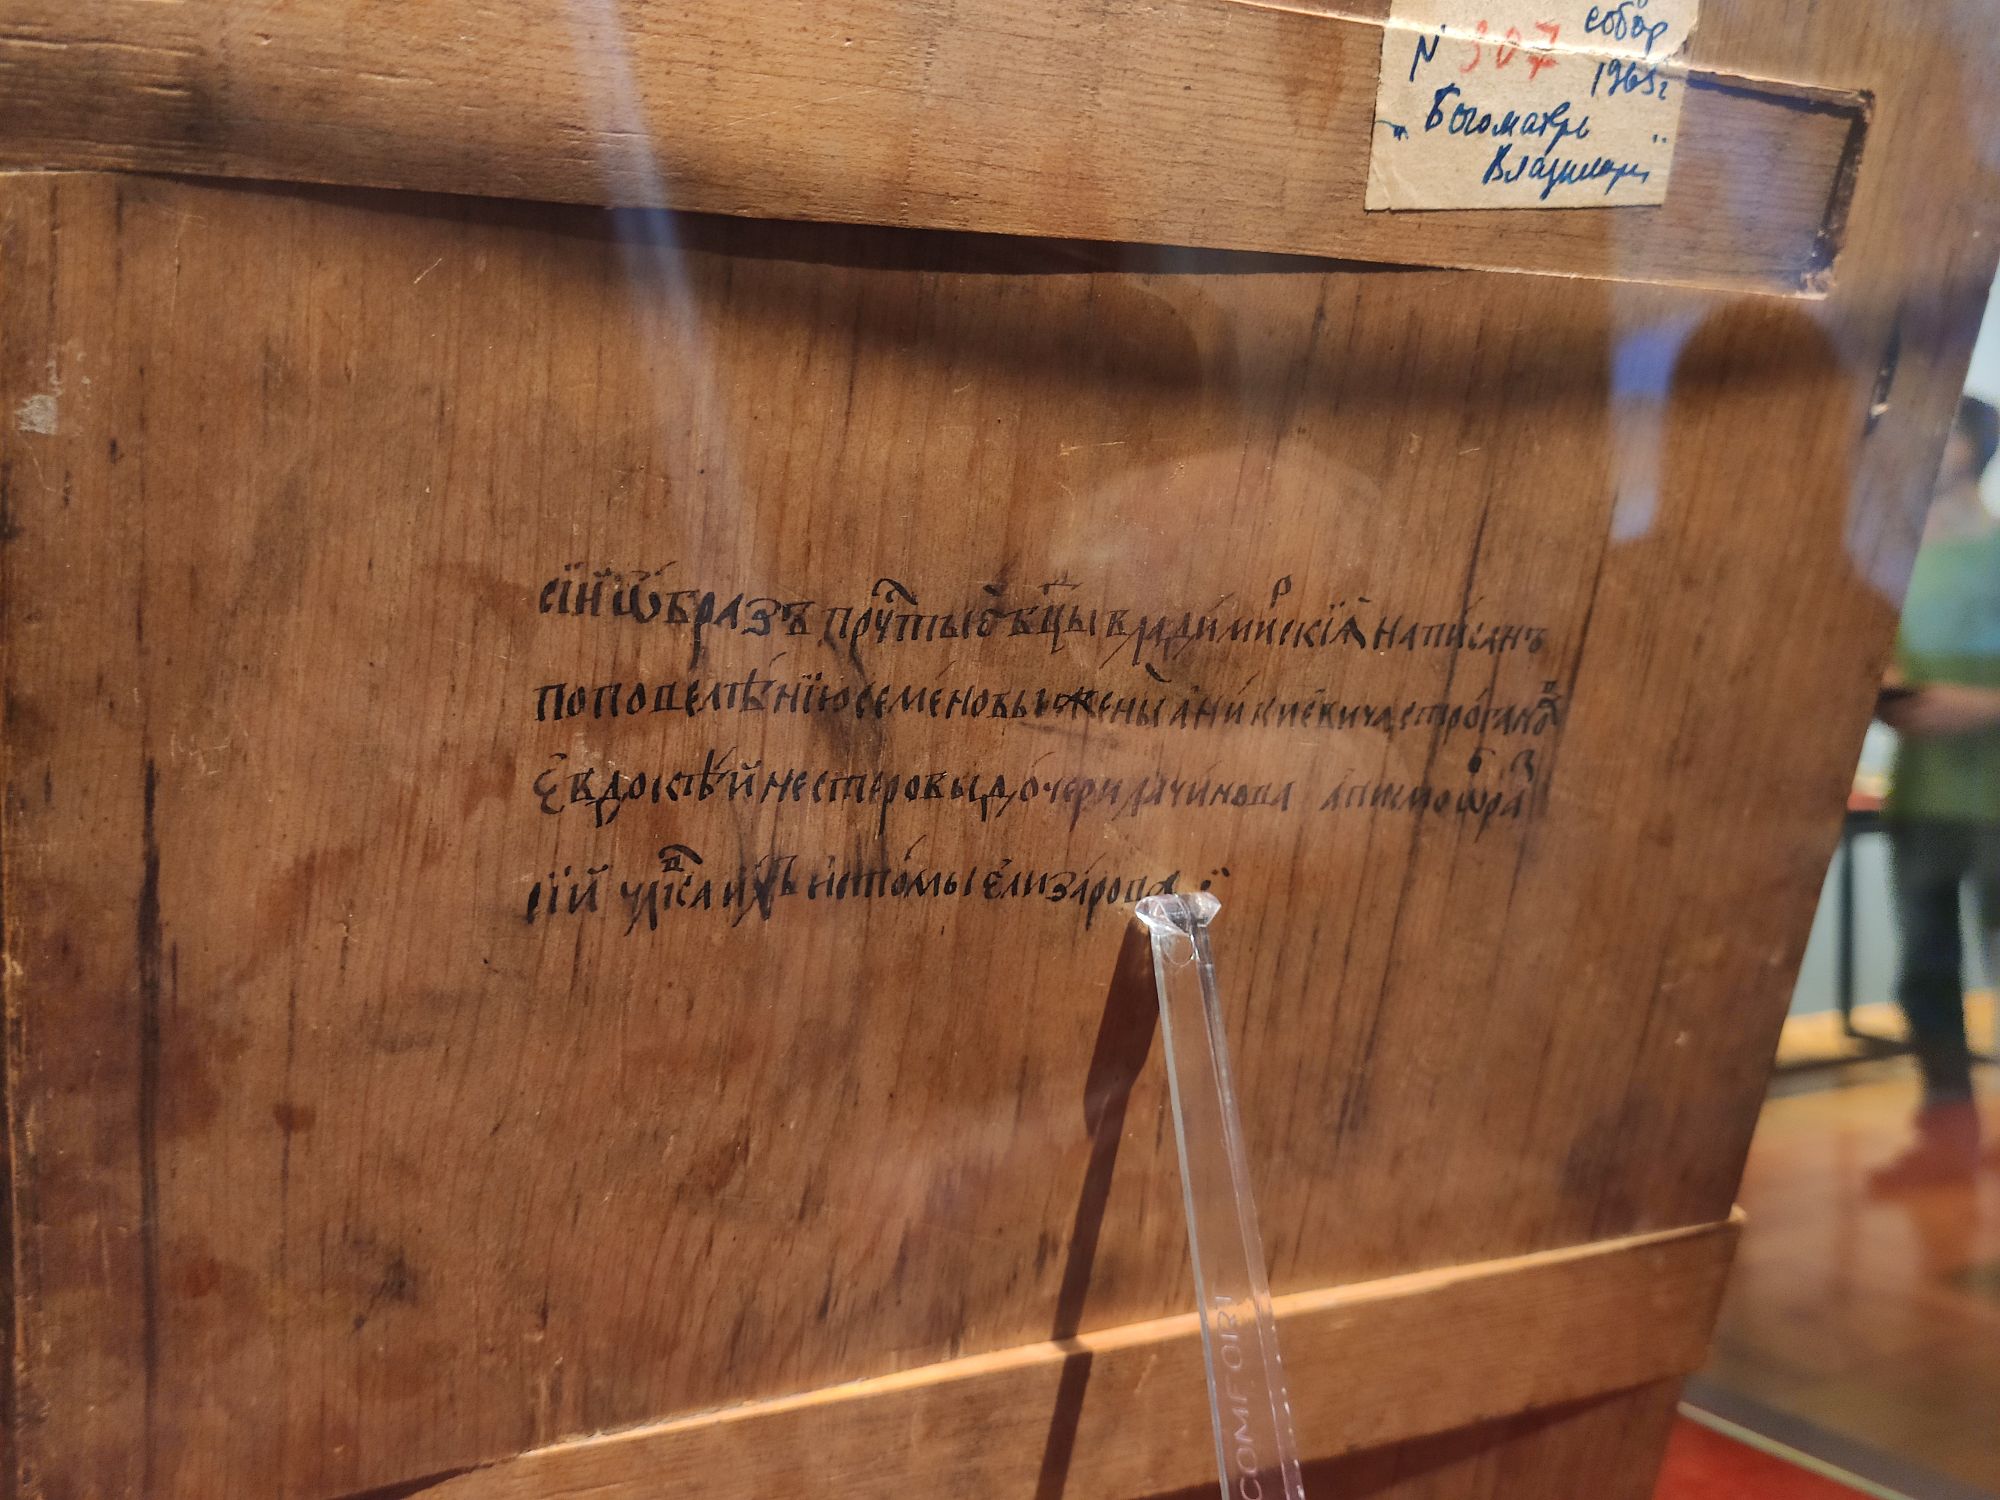 собор
N 307 1965г
„Богоматерь
Владимир"
сїй ѡбразъ прⷭ҇чтыꙗ бцⷣы владимиⷬскїѧ написанъ
по повелѣнїю семеновы жены аникиевича строганоⷡ
евдокѣй нестеровы дочери лачинова а писмо ѡраⷥ
сїй истомы елизарова
COMF.ORI